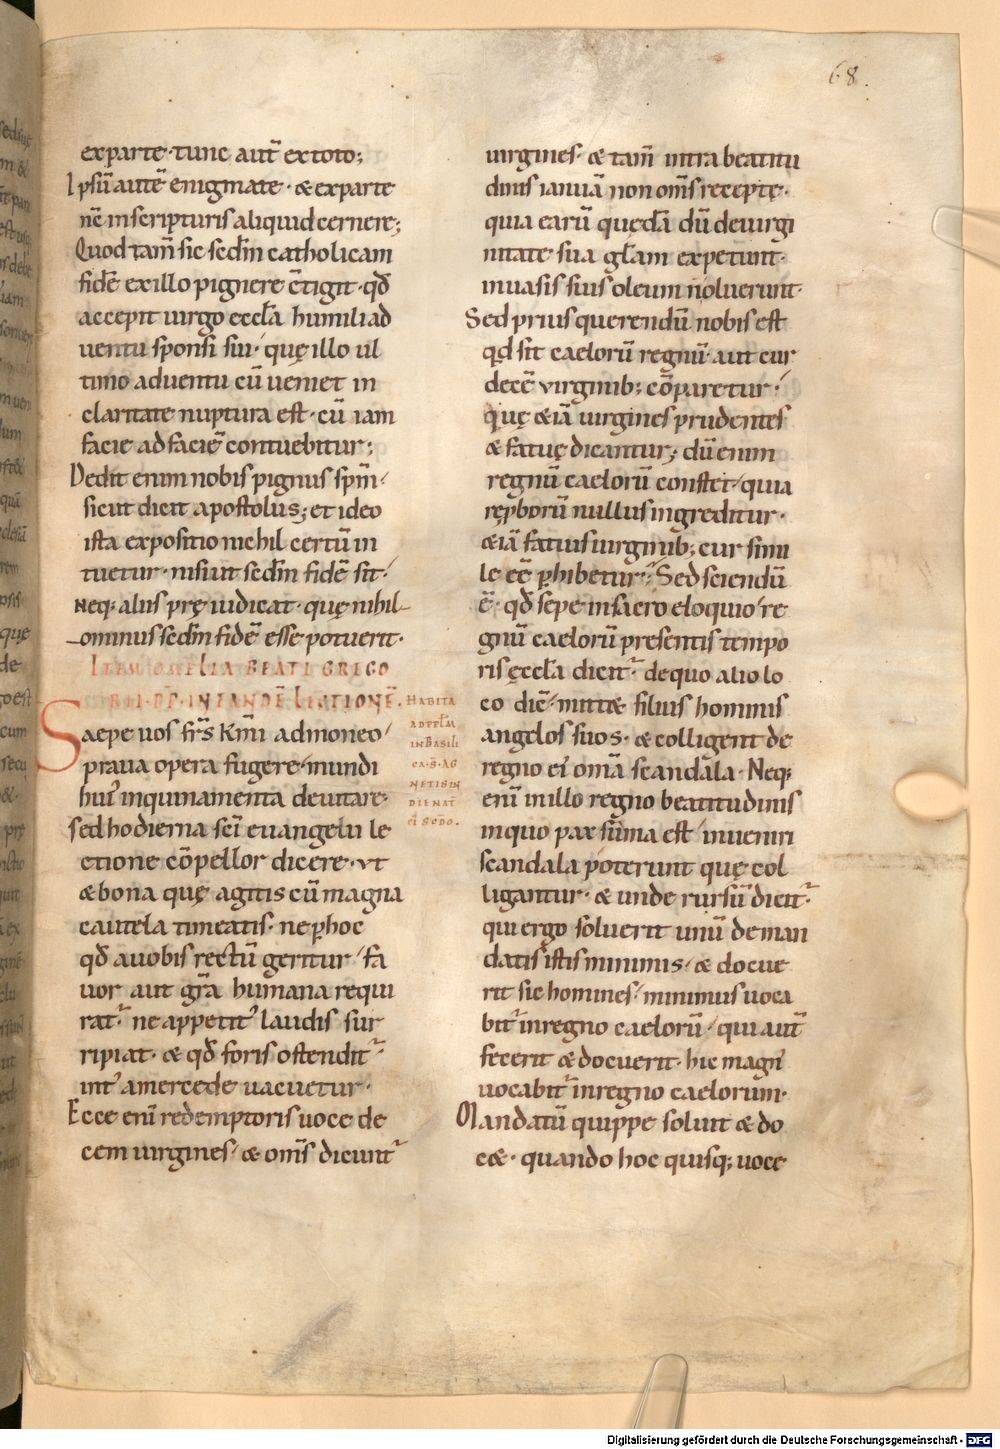 68.
ex parte· tunc aut̄ ex toto;
Ipsū autē enigmate· & ex parte
nc̄ in scripturis aliquid cernere;
Quod tam̄ sic secdm̄ catholicam
fidē ex illo pignere c̄tigit· qd̄
accepit uirgo eccl̄a humili ad
uentu sponsi sui· quę illo ul
timo aduentu cū ueniet in
claritate nuptura est· cū iam
facie ad faciē contuebitur;
Dedit enim nobis pignus spm̄·
sicut dicit apostolus; et ideo
ista expositio nichil certū in
tuetur· nisi ut secdm̄ fidē sit·
Neq; aliis pręiudicat· quę nihil
ominus secdm̄ fidē esse potuerit·
ITEM OMELIA BEATI GREGO
RII· PP̄· IN EANDĒ LECTIONĒ·
HABITA
AD PPLM̄
IN BASILI
CA· S· AG
NETIS IN
DIE NAT̄
EI SCDO·
Saepe uos fr̄s km̄i admoneo
praua opera fugere· mundi
hui' inquinamenta deuitare·
sed hodierna sc̄i euangelii le
ctione cōpellor dicere· ut
& bona quę agitis cū magna
cautela timeatis· ne p̱ hoc
qd̄ a uobis rectū geritur· fa
uor aut gr̄a humana requi
rat᷑· ne appetit' laudis sur
ripiat· & qd̄ foris ostendit᷑·
int' a mercede uacuetur·
Ecce enī redemptoris uoce de
cem uirgines· & om̄s dicunt᷑
uirgines· & tam̄ intra beatitu
dinis ianuā non om̄s receptę·
quia earū quędā dū de uirgi
nitate sua gl̄am expetunt·
in uasis suis oleum noluerunt·
Sed prius querendū nobis est
qd sit caelorū regnū· aut cur
decē uirginib; cōparetur·
quę &iā uirgines prudentes
& fatuę dicantur; dū enim
regnū caelorū constet· quia
reproborū nullus ingreditur·
&iā fatuis uirginib; cur simi
le eē p̱hibetur; Sed sciendū
ē· qd̄ sepe in sacro eloquio re
gnū caelorū presentis tempo
ris ęccl̄a dicit᷑· de quo alio lo
co dic̄· mitt& filius hominis
angelos suos· & colligent de
regno ei' omā scandala· Neq;
enī in illo regno beatitudinis
in quo pax sūma est· inueniri
scandala poterunt quę col
ligantur· & unde rursū dicit᷑·
qui ergo soluerit unū de man
datis istis minimis· & docue
rit sic homines· minimus uoca
bit᷑ in regno caelorū· qui aut̄
fecerit & docuerit· hic magn'
uocabit᷑ in regno caelorum·
Mandatū quippe soluit & do
c&· quando hoc quisq; uoce
Digitalisierung gefördert durch die Deutsche Forschungsgemeinschaft - DFG